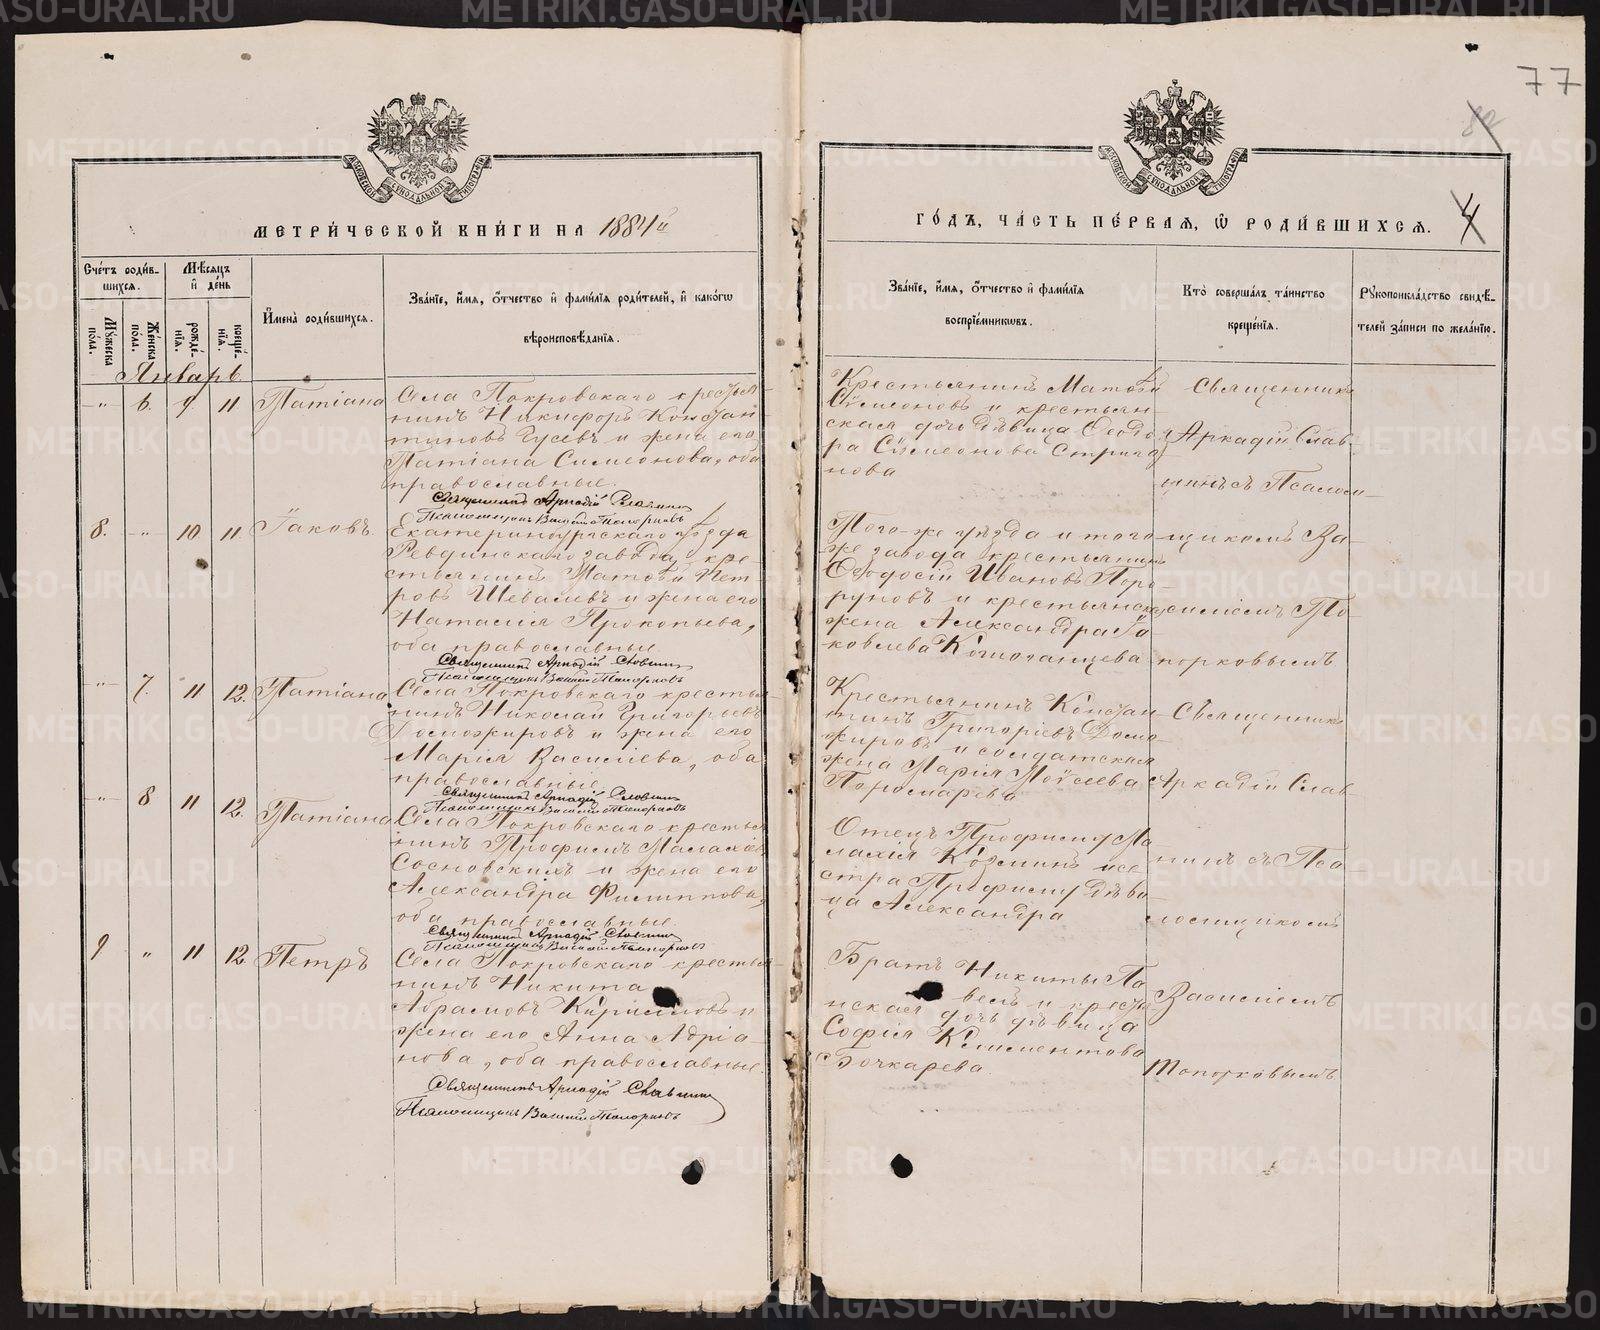 77
МЕТРИ́ЧЕСКОЙ КНИ́ГИ НА 1884й
ГО́ДЪ, ЧА́СТЬ ПЕ́РВАЯ, Ѿ РОДИ́ВШИХСЯ.
4
Сче́тъ роди́в-
шихся.
Мѣ́сяцъ
и де́нь
Му́жеска
по́ла.
Же́нска
по́ла.
рожде́-
нія.
креще́-
нія.
И҆мена̀ роди́вшихся.
Зва́нїе, и҆́мя, ѻ҆́тчество и҆ фами́лїя роди́телей, и҆ како́гѡ
вѣроисповѣ́данїя.
Зва́нїе, и҆́мя, ѻ҆́тчество и҆ фами́лїя
воспрїе́мниковъ.
Кто̀ соверша́лъ та́инство
креще́нїя.
Рꙋкоприкла́дство свидѣ́-
телей за́писи по жела́нїю.
Январь.
„ 6. 9 11 Татіана
Села Покровскаго крестья-
нинъ Никифоръ Констан-
тиновъ Гусевъ и жена его
Татіана Симеонова, оба
православные.
Священникъ Аркадій Славнинъ
Псаломщикъ Василій Топорковъ
Крестьянинъ Матѳей
Сѵмеоновъ и крестьян-
ская дочь дѣвица Ѳеодо-
ра Сѵмеонова Стрига-
нова
Священникъ
Аркадій Слав-
нинъ съ Псалом-
8. „ 10 11 Іаковъ
Екатеринбургскаго уѣзда
Ревдинскаго завода, кре-
стьянинъ Матѳей Пет-
ровъ Шевалевъ и жена его
Наталія Прокопьева,
оба православные.
Священникъ Аркадій Славнинъ
Псаломщикъ Василій Топорковъ
Того-же уѣзда и того-
же завода крестьянинъ
Ѳеодосій Ивановъ
и крестьянск.
жена Александра Іа-
ковлева
щикомъ Ва-
силіемъ То-
порковымъ
„ 7. 11 12. Татіана
Села Покровскаго крестья-
нинъ Николай Григорьевъ
Доможировъ и жена его
Марія Василіева, оба
православные.
Священникъ Аркадій Славнинъ
Псаломщикъ Василій Топорковъ
Крестьянинъ Констан-
тинъ Григоріевъ Домо-
жировъ и солдатская
жена Марія Моѵсеева
Пономарева
Священникъ
Аркадій Слав-
„ 8 11 12. Татіана
Села Покровскаго крестья-
нинъ Трофимъ Малахіевъ
Сосновскихъ и жена его
Александра Филиппова,
оба православные.
Священникъ Аркадій Славнинъ
Псаломщикъ Василій Топорковъ
Отецъ Трофиму Ма-
лахія Козминъ и се-
стра Трофиму дѣви-
ца Александра
нинъ съ Пса-
ломщикомъ
9 „ 11 12. Петръ
Села Покровскаго крестья-
нинъ Никита
Абрамовъ Кирилловъ и
жена его Анна Адріа-
нова, оба православные.
Священникъ Аркадій Славнинъ
Псаломщикъ Василій Топорковъ
Братъ Никиты Па-
велъ и крестья-
нская дочь дѣвица
Софія Климентова
Бочкарева
Василіемъ
Топорковымъ
METRIKI.GASO-URAL.RU